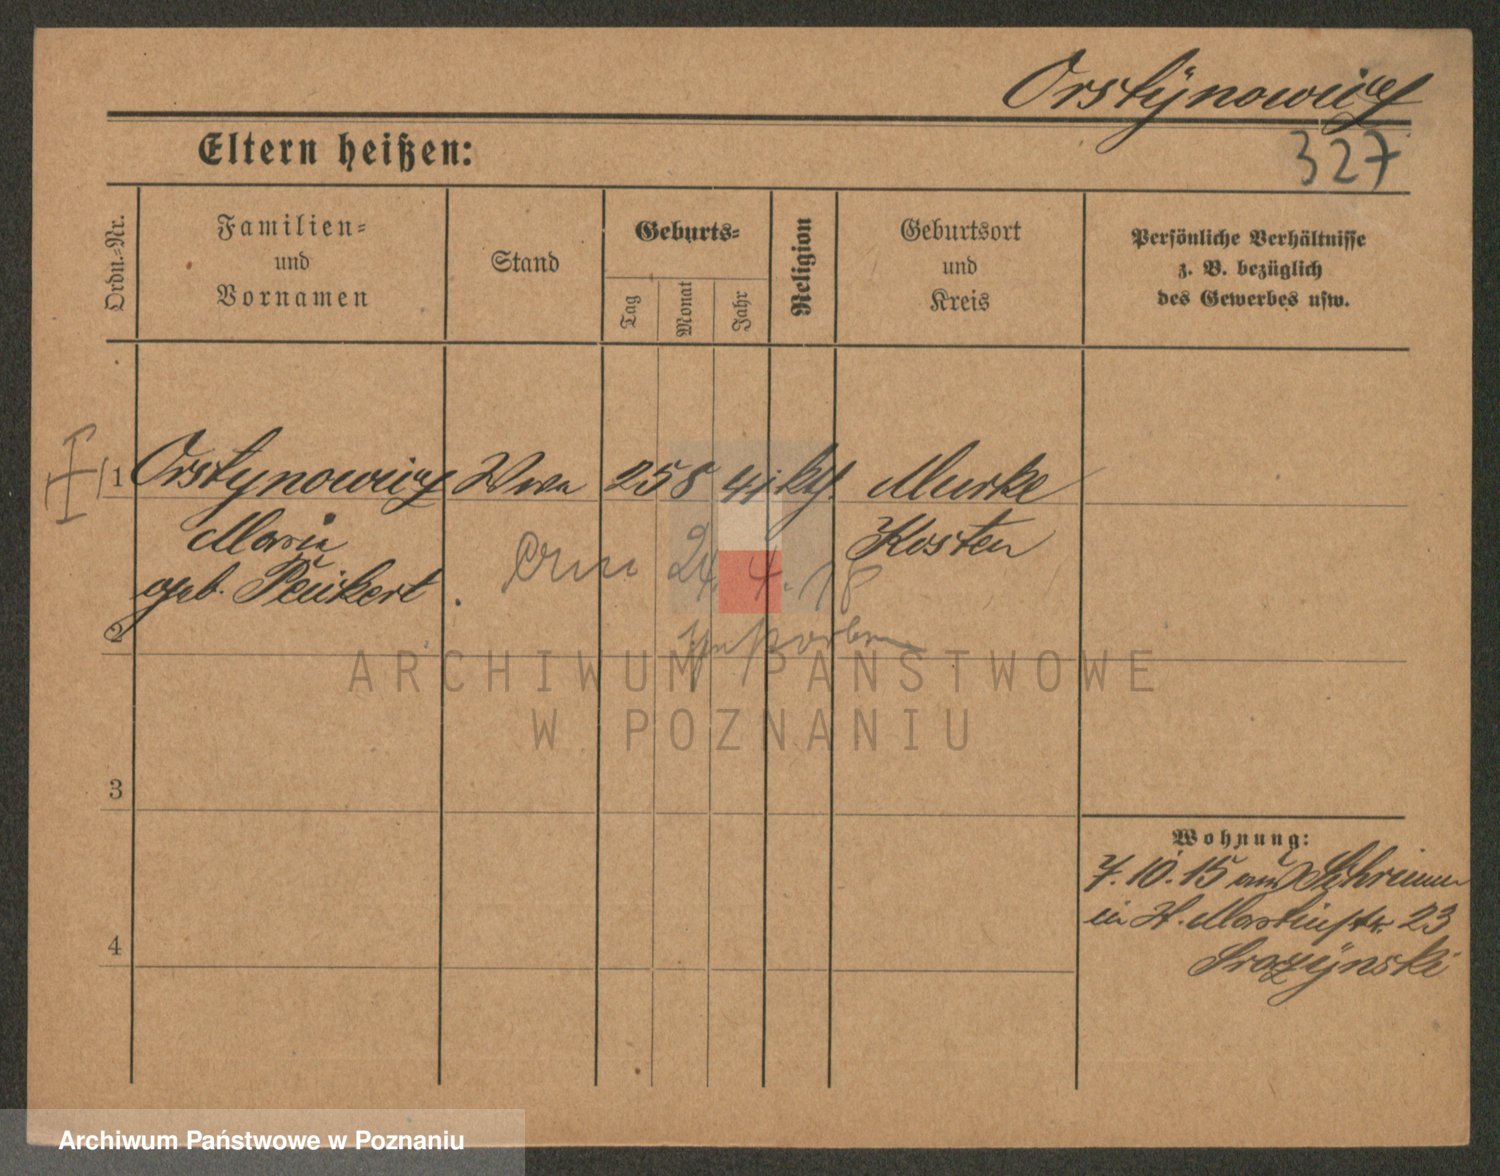 Orstÿnowicz
327
Eltern heißen:
Ordn.-Nr.
Familien-
und
Vornamen
Stand
Geburts-
Tag
Monat
Jahr
Religion
Geburtsort
und
Kreis
Persönliche Verhältnisse
z. B. bezüglich
des Gewerbes usw.
1 Orstynowicz Wwe 25 8 kth. Murke
Maria Kosten
geb. Peukert
24. 4. 18
gestorben
2
ARCHIWUM PAŃSTWOWE
W POZNANIU
3
Wohnung:
7.10.15 aus Schrimm
in St. Martinstr. 23
4
Archiwum Państwowe w Poznaniu